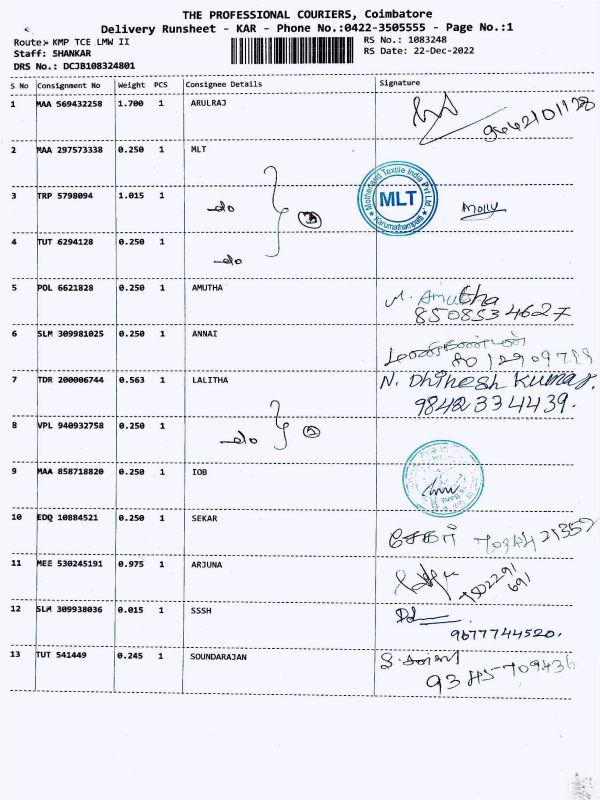 THE PROFESSIONAL COURIERS, Coimbatore
Delivery Runsheet - KAR - Phone No.:0422-3505555 - Page No.:1
Route:- KMP TCE LMW II
RS No.: 1083248
Staff: SHANKAR
RS Date: 22-Dec-2022
DRS No.: DCJB108324801
S No Consignment No Weight PCS Consignee Details Signature
1 MAA 569432258 1.700 1 ARULRAJ
2 MAA 297573338 0.250 1 MLT
Motherland Textile India Pvt Ltd
MLT
Karumathampatti
3 TRP 5798094 1.015 1 do 3 Molly
4 TUT 6294128 0.250 1 do
5 POL 6621828 0.250 1 AMUTHA M. Amutha
8508534627
6 SLM 309981025 0.250 1 ANNAI
7 TDR 200006744 0.563 1 LALITHA N. Dhinesh Kumar.
9842334439.
8 VPL 940932758 0.250 1 do 2
9 MAA 858718820 0.250 1 IOB
10 EDQ 10884521 0.250 1 SEKAR சேகர்
11 MEE 530245191 0.975 1 ARJUNA
12 SLM 309938036 0.015 1 SSSH
9677744520.
13 TUT 541449 0.245 1 SOUNDARAJAN
9345709436